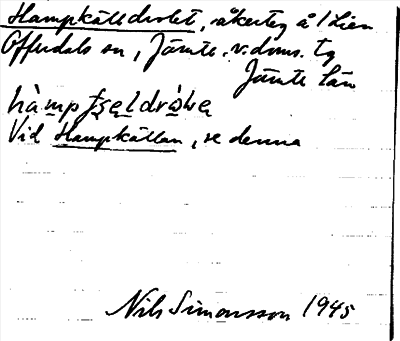 Hampkälledrolet, åkerteg å 1 Lien
Offerdals sn, Jämtl. v. doms. tg
Jämtl. län
Vid Hampkällan, se denna
Nils Simonsson 1945